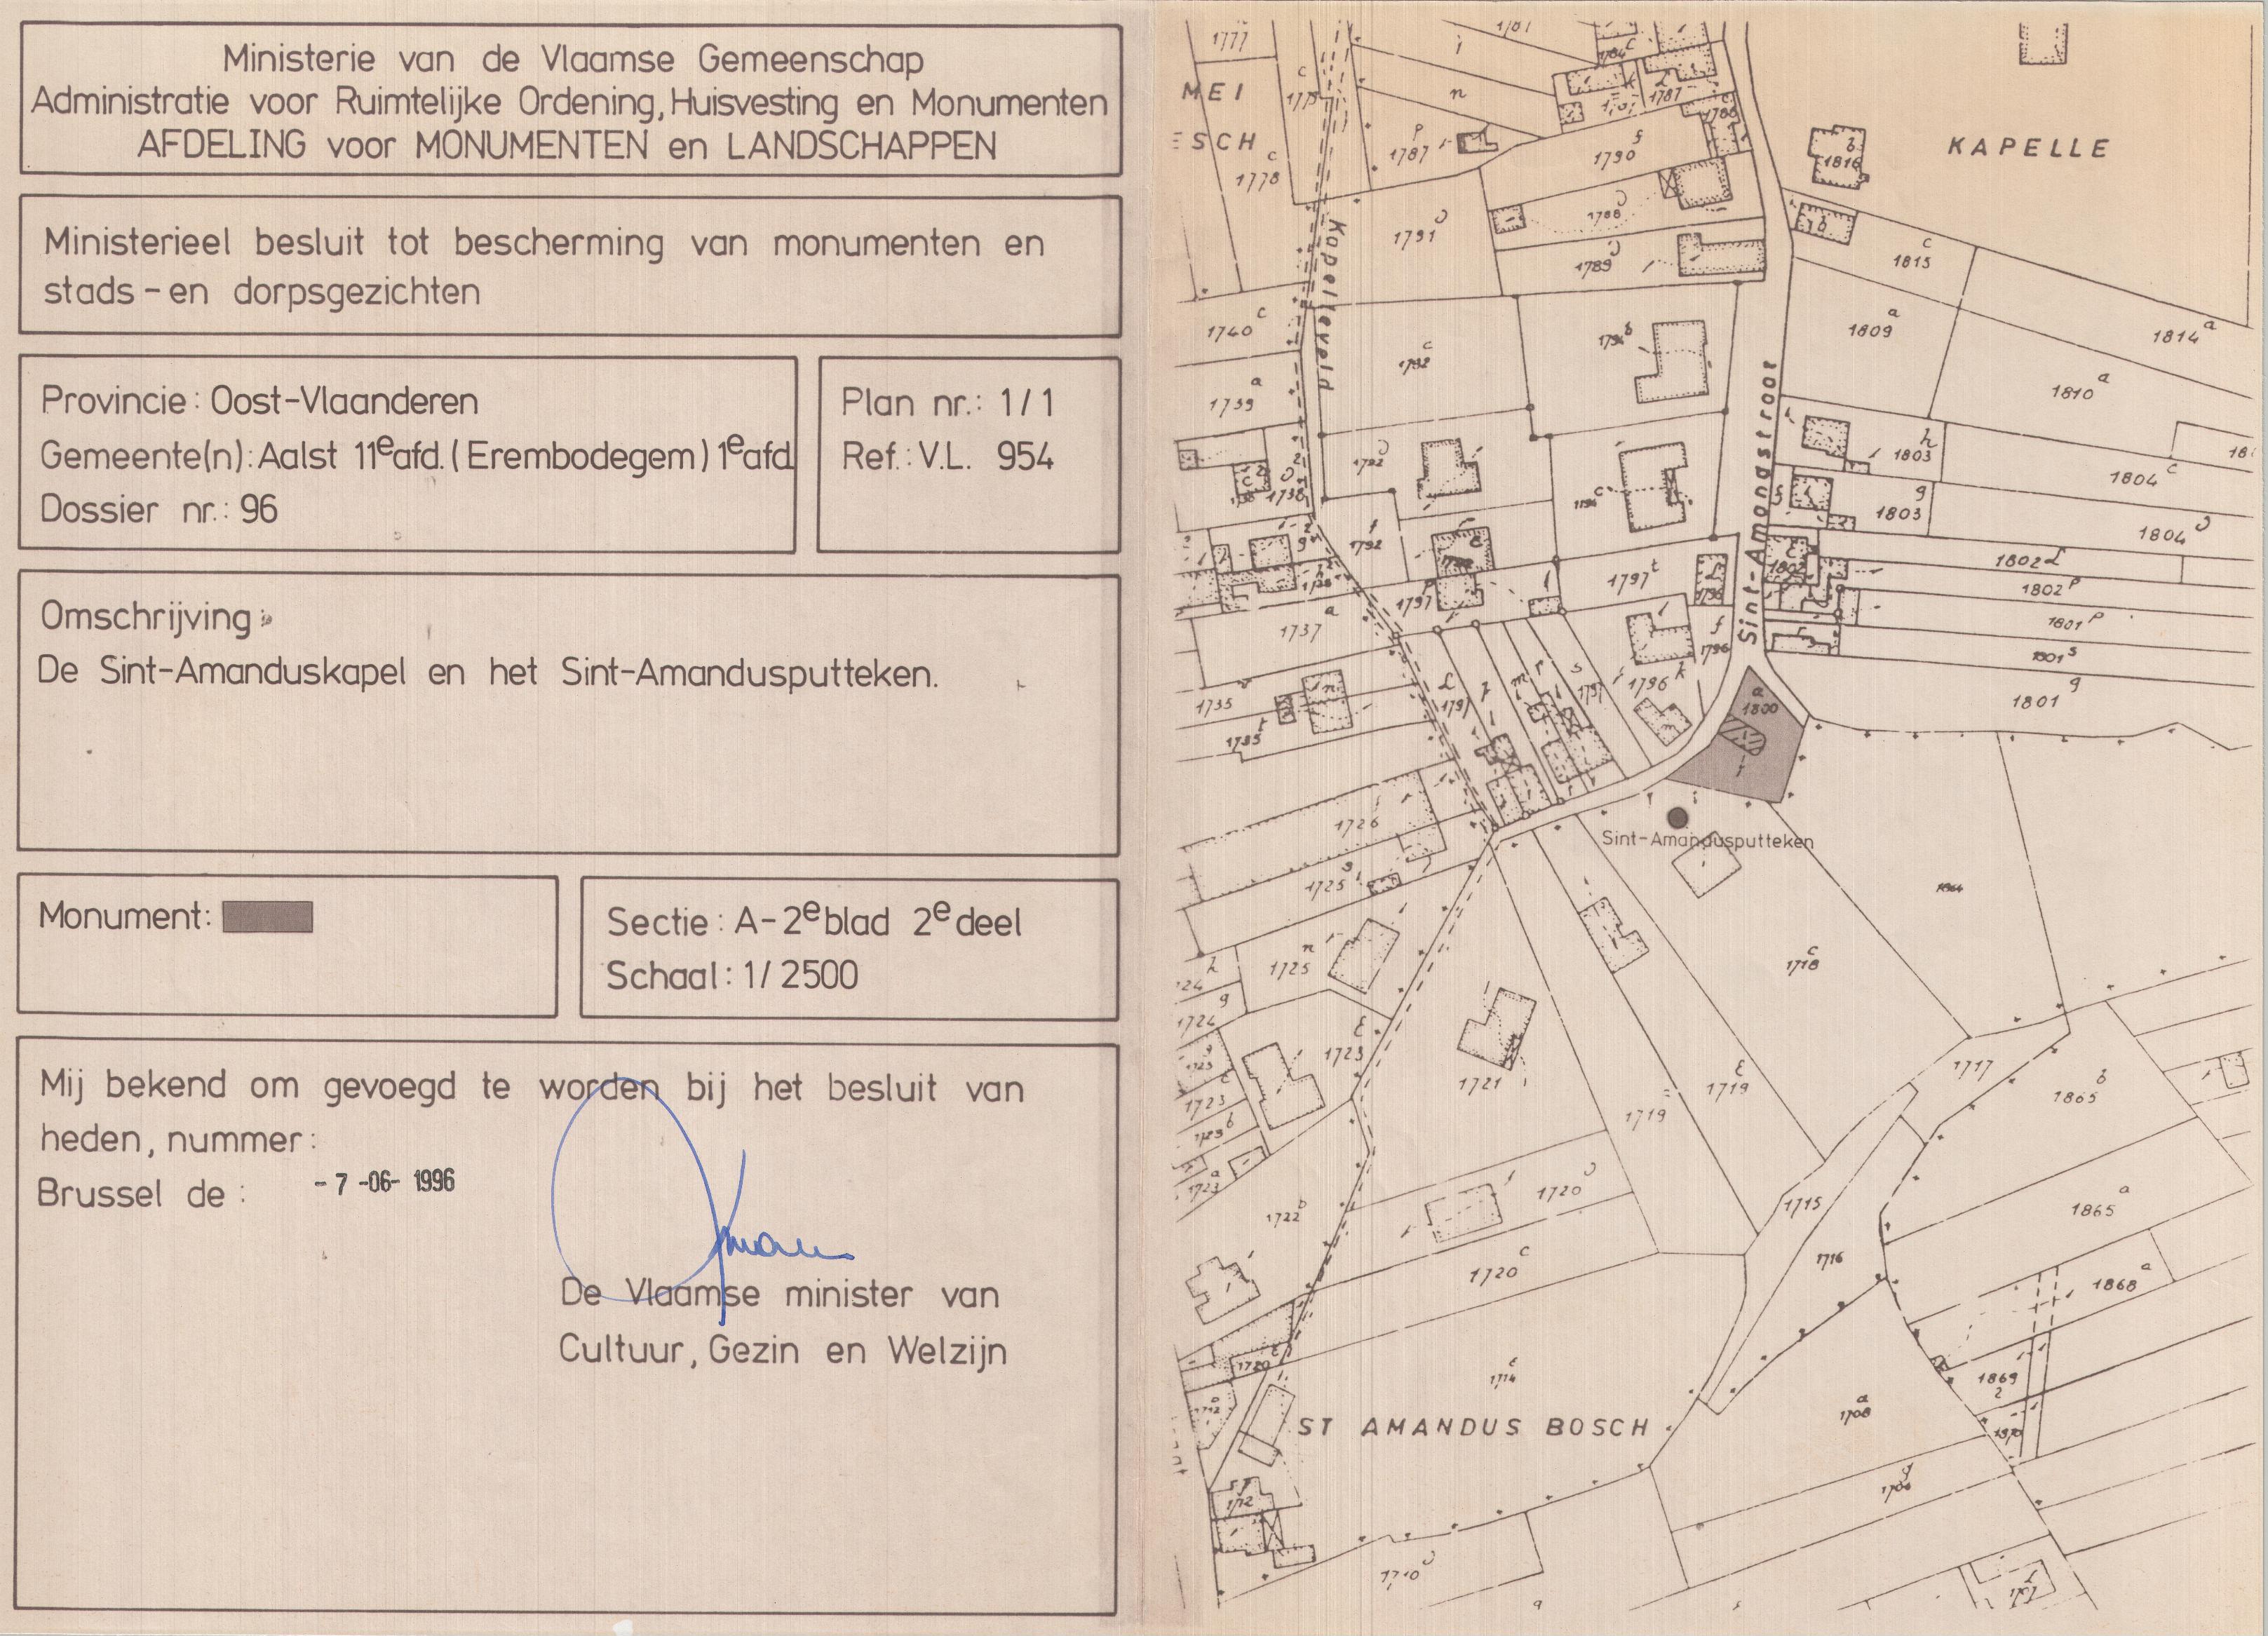 Ministerie van de Vlaamse Gemeenschap
Administratie voor Ruimtelijke Ordening, Huisvesting en Monumenten
AFDELING voor MONUMENTEN en LANDSCHAPPEN
Ministerieel besluit tot bescherming van monumenten en
stads-en dorpsgezichten
Provincie: Oost-Vlaanderen
Gemeente(n): Aalst 11e afd. (Erembodegem) 1e afd.
Dossier nr.: 96
Plan nr.: 1/1
Ref.: V.L. 954
Omschrijving:
De Sint-Amanduskapel en het Sint-Amandusputteken.
Monument:
Sectie: A-2e blad 2e deel
Schaal: 1/2500
Mij bekend om gevoegd te worden bij het besluit van
heden, nummer:
Brussel de: -7-06-1996
De Vlaamse minister van
Cultuur, Gezin en Welzijn
1777
MEI
ESCH
c
1778
p
1787
1790
1788
1789
1791
c
1740
a
1739
Kapelleveld
c
1792
KAPELLE
b
1816
c
1815
a
1809
1814 a
1810 a
h
1803
g
1803
1804 c
1804
1802 L
1802 p
1801 p
1801 s
1801 g
Sint-Amandstraat
1797 t
1796 k
f
1796
a
1800
1737 a
1735
1726
1725
n
1725
g
1724
1723
1723
1723 b
a
1723
1722
Sint-Amandusputteken
1864
c
1718
1721
1719
1719
1717
b
1865
1715
1716
a
1865
1868 a
1869
1720
c
1720
1714
ST AMANDUS BOSCH
a
1708
1712
1710